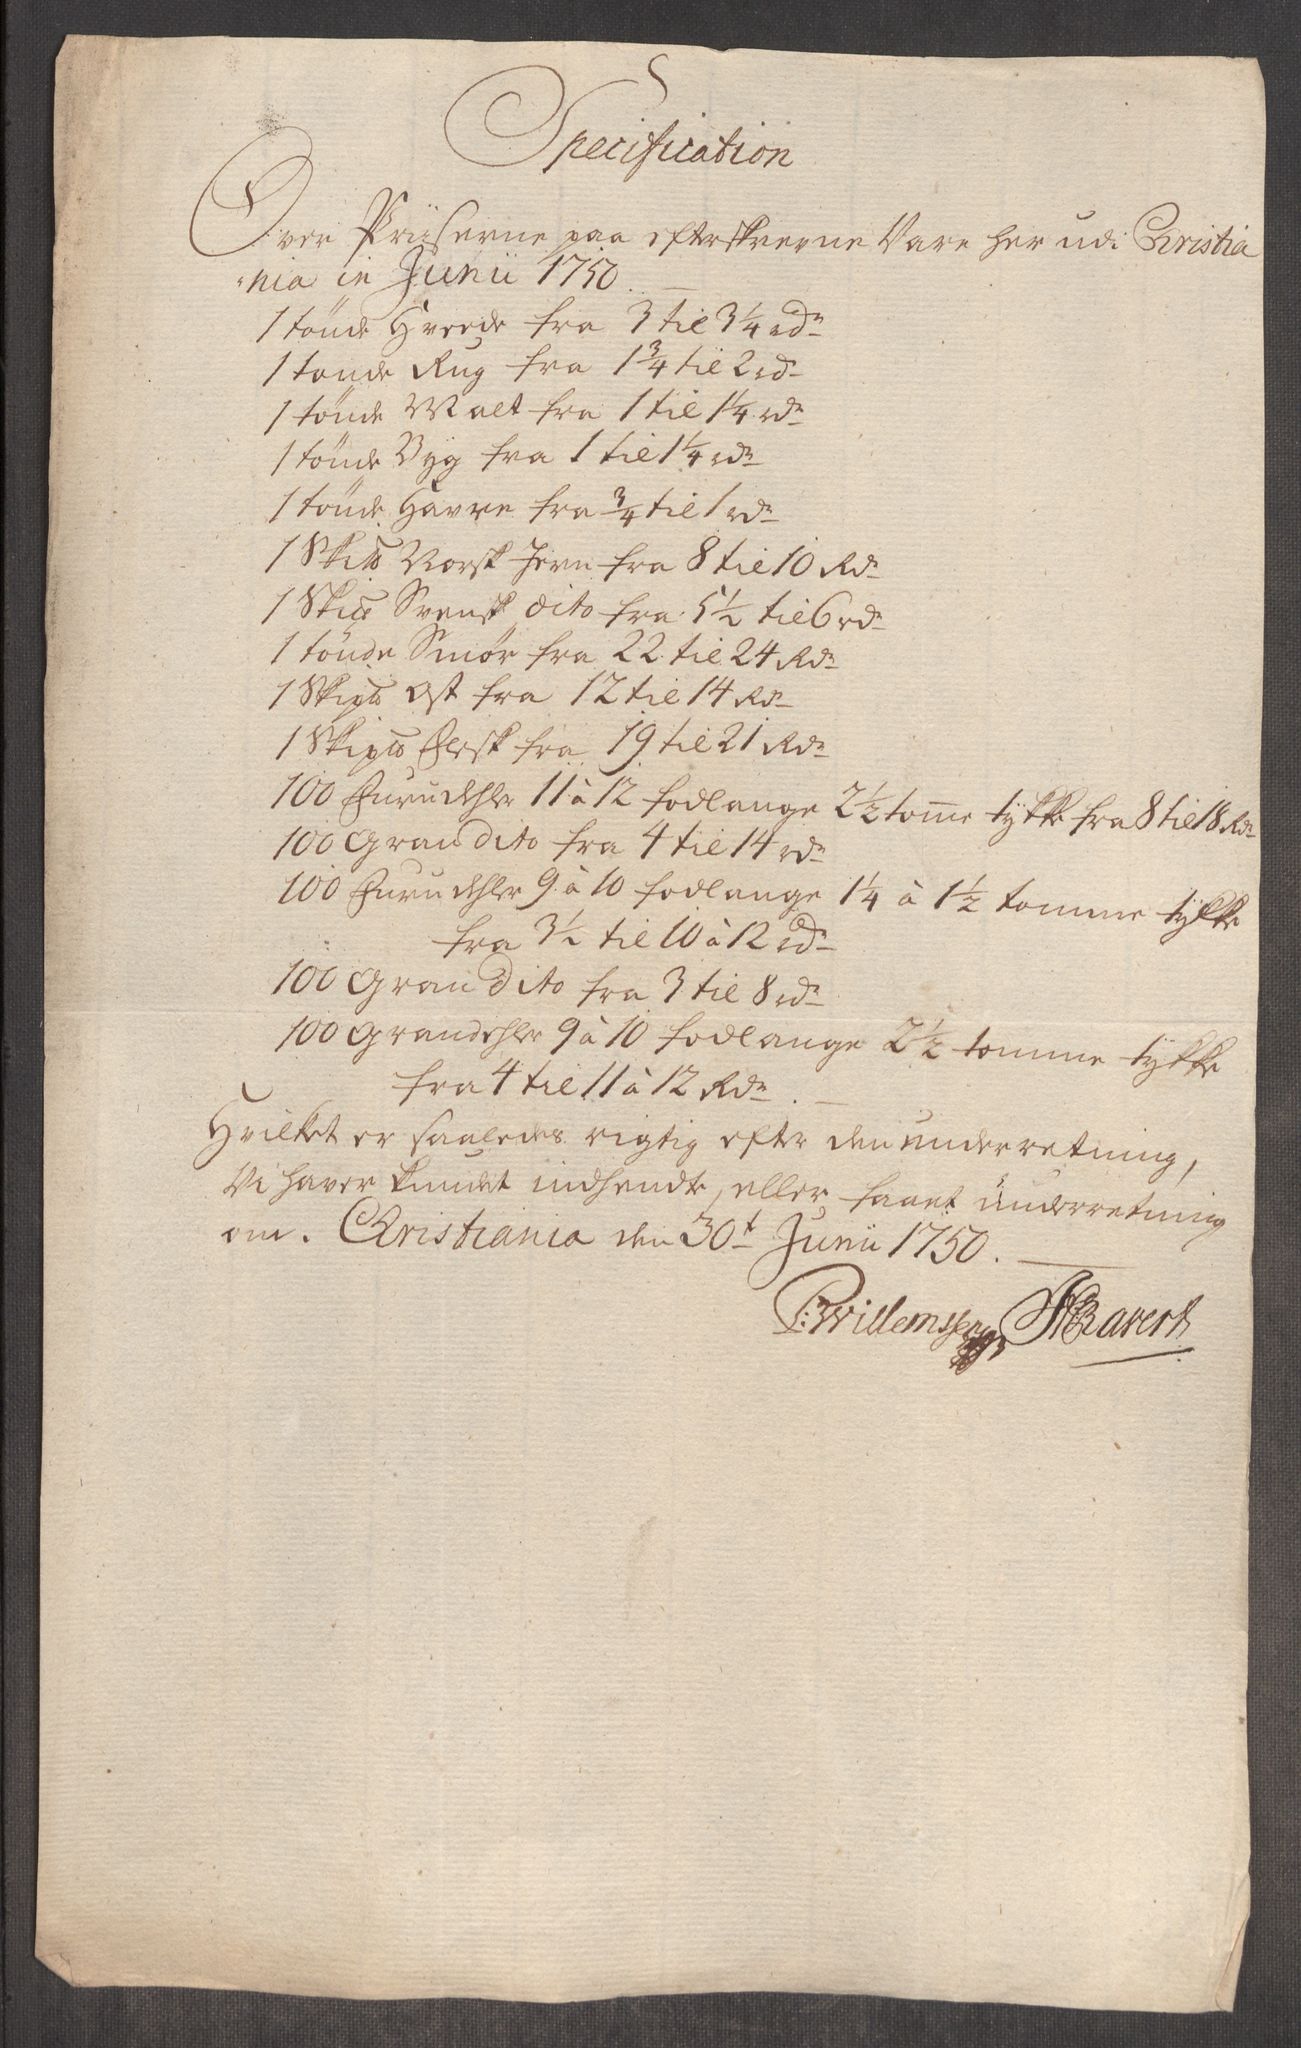 Specification
Over Priiserne paa efterskrevne Vare her udi Christia
nia in Junii 1750.
1 tønde Hveede fra 3 til 3¼ rdr
1 tønde Rug fra 1¾ til 2 rd
1 tønde Malt fra 1 til 1¼ rdr
1 tønde Byg fra 1 til 1¼ rdr
1 tønde Havre fra ¾ til 1 rdr
1 Skippd Norsk Jern fra 8 til 10 Rdr
1 Skippd Svensk dito fra 5½ til 6 rdr
1 tønde Smør fra 22 til 24 Rdr
1 Skippd Ost fra 12 til 14 Rdr
1 Skippd Flesk fra 19 til 21 Rdr
100 Furudehler 11 à 12 fodlange 2½ tome tykke fra 8 til 18 Rdr
100 Gran dito fra 4 til 14 rdr
100 Furudehler 9 à 10 fodlange 1¼ à 1½ tomme tykke
fra 3½ til 10 à 12 rdr
100 Gran dito fra 3 til 8 rdr
100 Grandehler 9 à 10 fodlange 2½ tomme tykke
fra 4 til 11 à 12 Rdr.
Hvilket er saaledes rigtig efter den underretning,
Vi haver kundet indhendte, eller faaet underretning
om. Christiania den 30t Junii 1750.
P: Willemsen Ravert